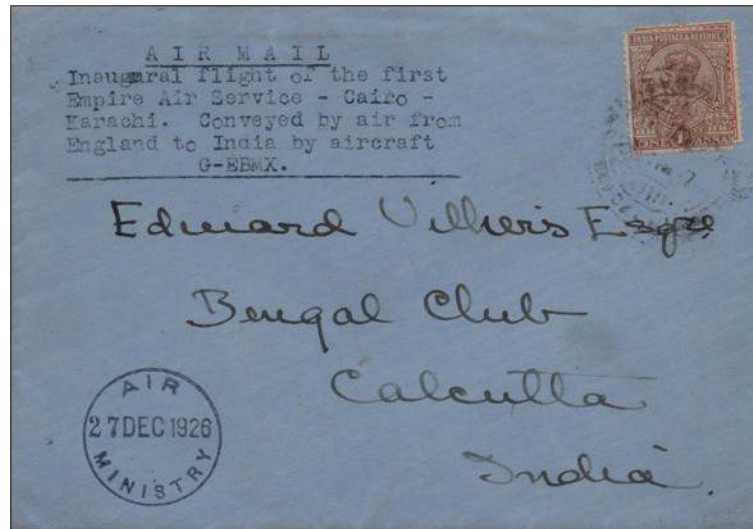 AIR MAIL
Inaugural flight of the first
Empire Air Service - Cairo -
Karachi. Conveyed by air from
England to India by aircraft
G-EBMX.
INDIA POSTAGE & REVENUE
1
ONE ANNA
Edward Villiers Esqre
Bengal Club
Calcutta
India.
AIR
27 DEC 1926
MINISTRY